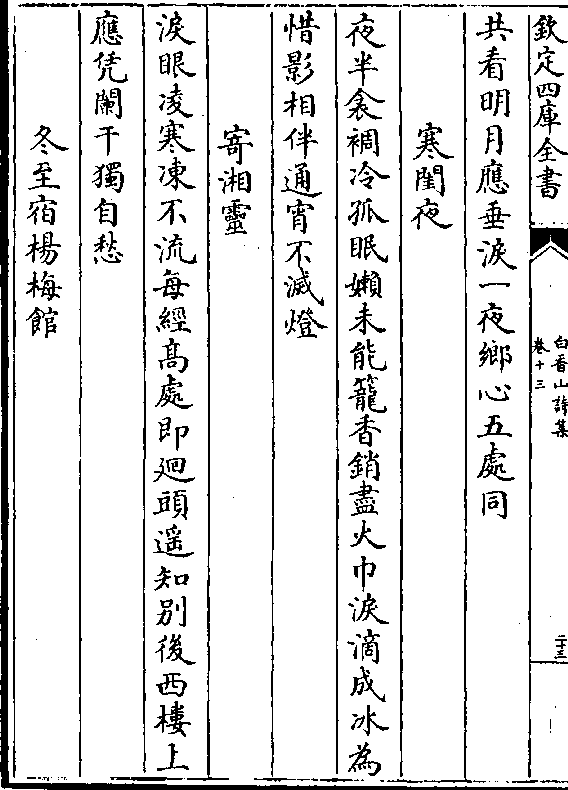 欽定四庫全書
白香山詩集
卷十三
二十三
共看明月應垂淚一夜鄉心五處同
寒閨夜
夜半衾裯冷孤眠嬾未能籠香銷盡火巾淚滴成冰為
惜影相伴通宵不滅燈
寄湘靈
淚眼凌寒凍不流每經高處即迴頭遥知别後西樓上
應凭闌干獨自愁
冬至宿楊梅館